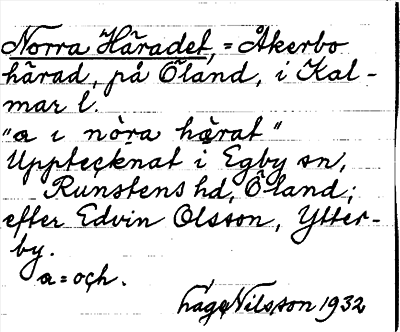 Norra Häradet, = Åkerbo
härad, på Öland, i Kal-
mar l.
"a i nòra hǫrat"
Upptecknat i Egby sn,
Runstens hd, Öland;
efter Edvin Olsson, Ytter-
by.
a = och.
Nilsson 1932